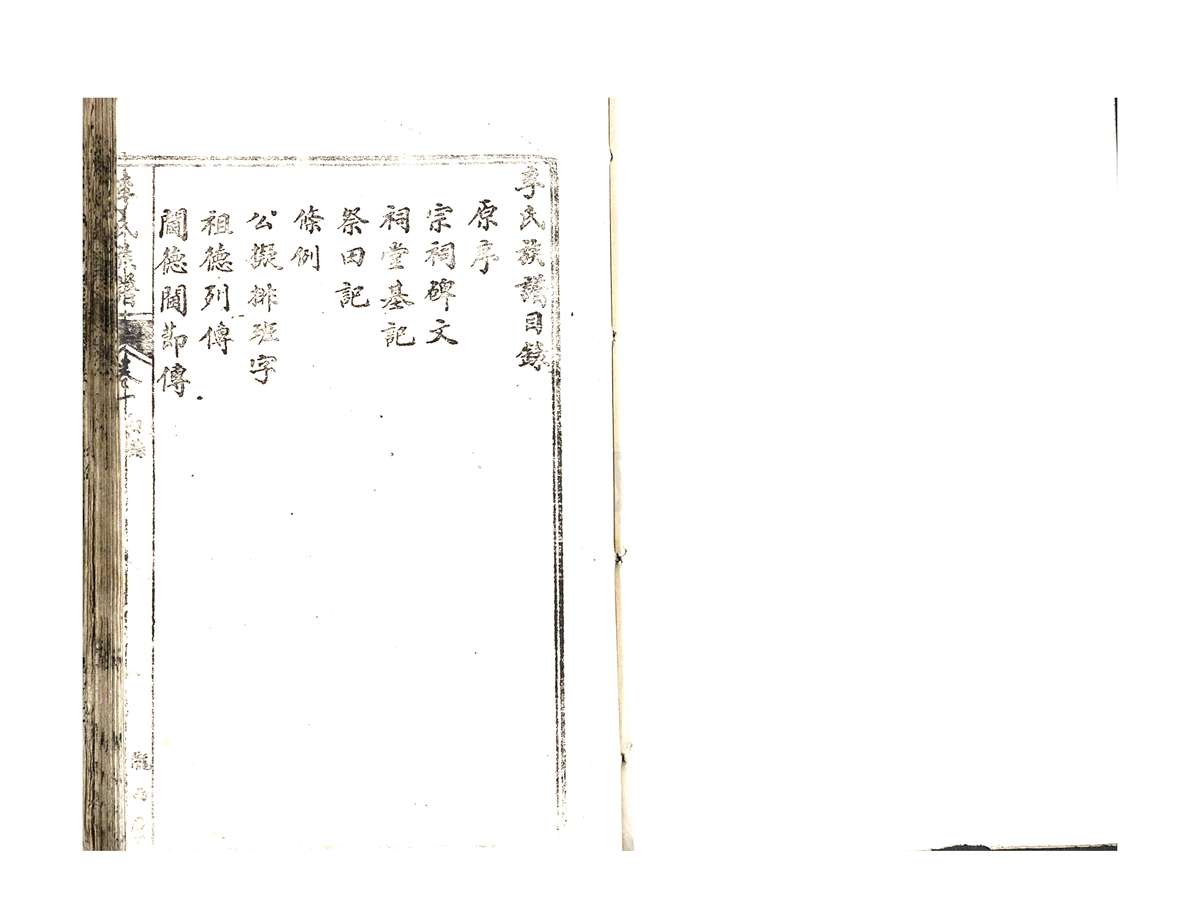 李氏族譜目錄
原序
宗祠碑文
祠堂基記
祭田記
條例
公擬排班字
祖德列傳
閫德閫節傳
李氏族譜
卷